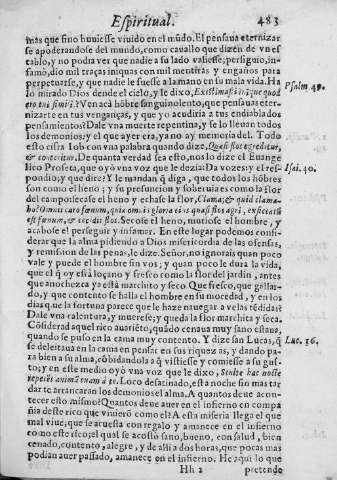 Espiritual. 483
mas que sino huuiesse viuido en el mũdo. El pensaua eternizar
se apoderandose del mundo, como cauallo que dizen de vn es
tablo, y no podia ver que nadie a su lado valiesse; persiguio, in-
famò, dio mil traças iniquas con mil mentiras y engaños para
perpetuarse, y que nadie le fuesse a la mano en su mala vida. Ha
lo mirado Dios dende el cielo, y le dixo, Existimasti inique quod
Psalm 49.
ero tui similis? Ven acà hõbre sanguinolento, que pensauas eter-
nizarte en tus venganças, y que yo acudiria a tus endiablados
pensamientos? Dale vna muerte repentina, y se lo lleuan todos
los demonios; y el que ayer era, ya no ay memoria del. Todo
esto cifra Iob con vna palabra quando dize, Quasi flos egreditur,
& conteritur. De quanta verdad sea esto, nos lo dize el Euange
lico Profeta, que oyò vna voz que le dezia: Da vozes: y el res-
Isai. 40.
pondio; y que dire? Le mandan q̃ diga, que todos los hõbres
son como el heno; y su presuncion y soberuia es como la flor
del campo: secase el heno y echase la flor, Clama; & quid clama-
bo? Omnis caro fœnum, & omnis gloria eius quasi flos agri, exsiccatũ
est fœnum, & cecidit flos. Secose el heno, muriose el hombre, y
acabose el perseguir y infamar. En este lugar podemos consi-
derar que la alma pidiendo a Dios misericordia de las ofensas,
y remission de las penas, le dize. Señor, no ignorais quan poco
vale y puede el hombre sin vos; y quan poco le dura la vida,
que el q̃ oy està loçano y fresco como la flor del jardin, antes
que anochezca ya està marchito y seco. Que fresco, que gallar-
do, y que contento se halla el hombre en su mocedad, y en los
dias que la fortuna parece que le haze nauegar a velas tẽdidas?
Dale vna calentura, y muerese; y queda la flor marchita y seca.
Cõsiderad aquel rico auariẽto, quãdo cenaua muy sano estaua,
quando se puso en la cama muy contento. Y dize san Lucas, q̃
Luc. 16.
se deleitaua en la cama en pensar en sus riquezas, y dando pa-
ra bien a su alma, cõbidandola a q̃ vistiesse y comiesse a su gus-
to; y en este medio oyò vna voz que le dixo, Stulte hac nocte
repetũt animã tuam à te. Loco desatinado, esta noche sin mas tar
dar te arrancaràn los demonios el alma. A quantos deue acon-
tecer esto mismo? Quantos deue auer en el infierno en compa
ñia deste rico que viuierõ como el? A esta miseria llega el que
mal viue; que se acuesta con regalo y amanece en el infierno
como este rico; el qual se acostò sano, bueno, con salud, bien
cenado, contento, alegre, y de alli a dos horas, que pocas mas
podian auer passado, amanece en el infierno. He aqui lo que
Hh 2 pretende